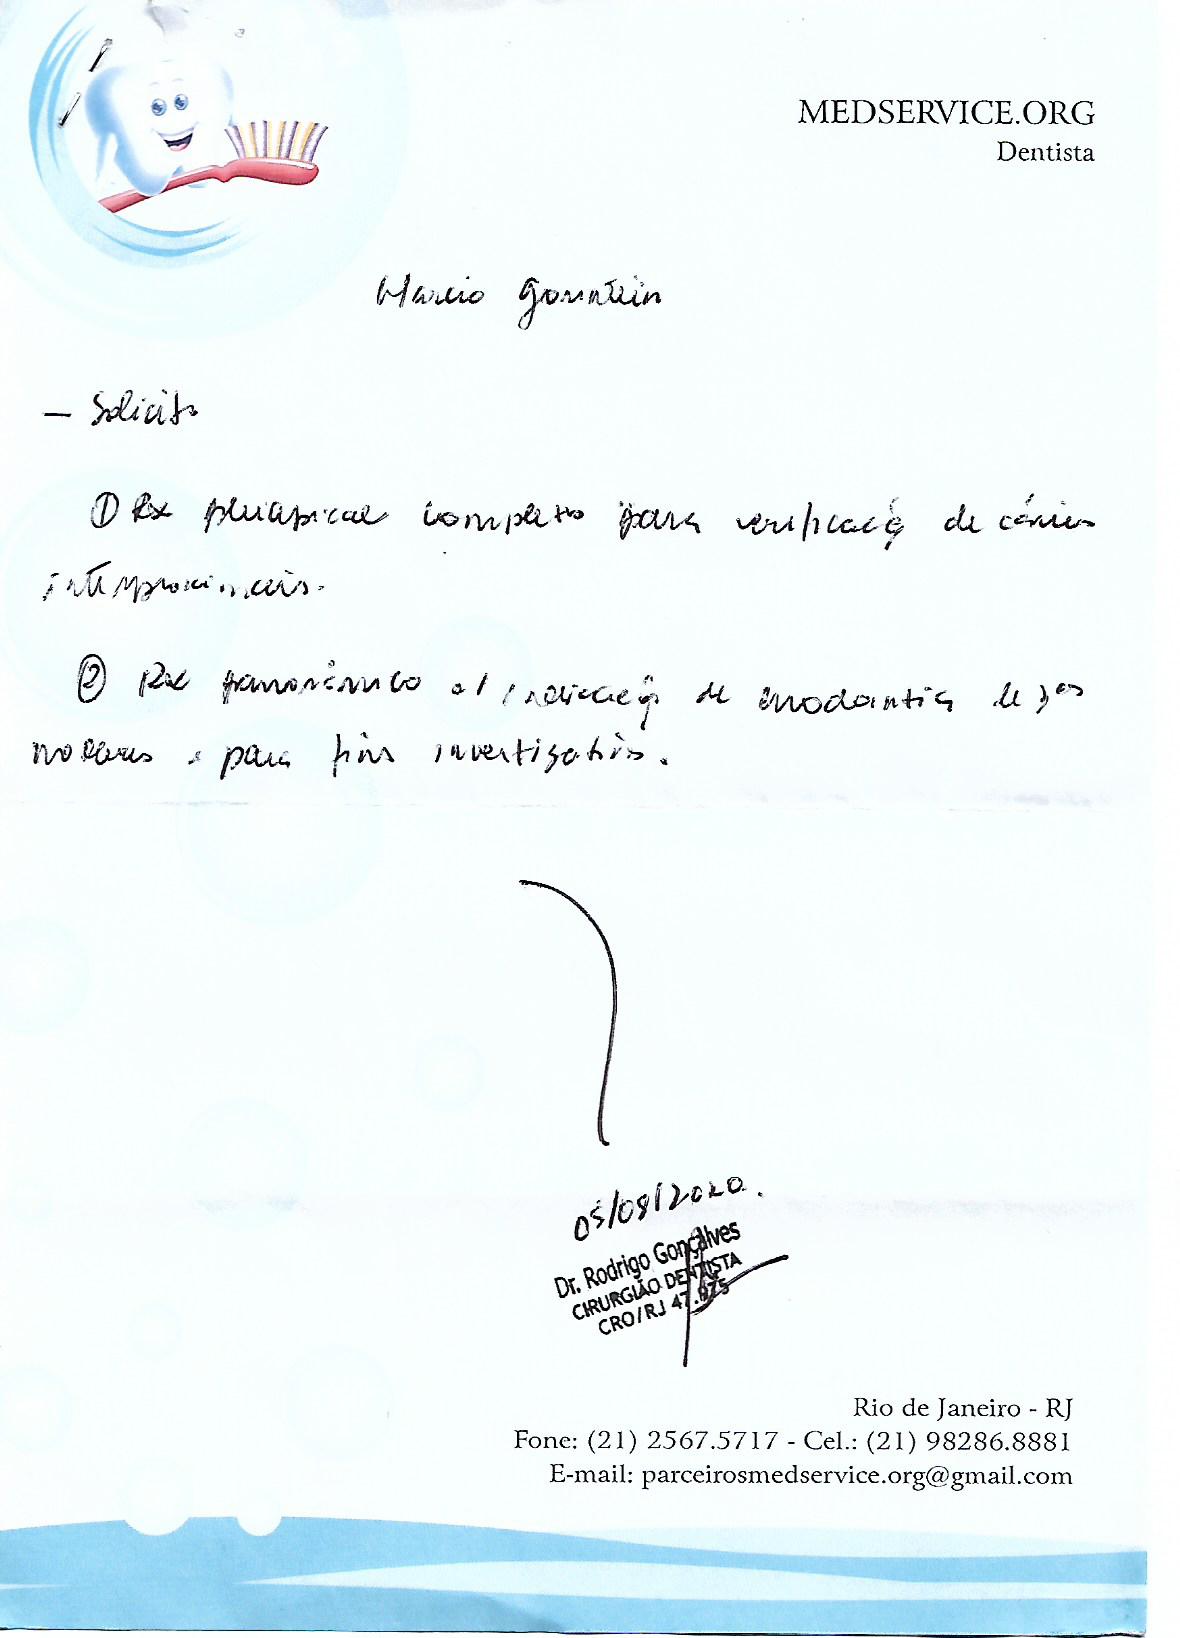 MEDSERVICE.ORG
Dentista
Marcio
— Solicito
① Rx periapical completo para verificaçã de cáries
interproximais.
② Rx panorâmico c/ indicaçã de exodontia de 3ºs
molares e para fins investigativos.
05/08/2020.
Dr. Rodrigo Gonçalves
CIRURGIÃO DENTISTA
CRO/RJ
Rio de Janeiro - RJ
Fone: (21) 2567.5717 - Cel.: (21) 98286.8881
E-mail: parceirosmedservice.org@gmail.com